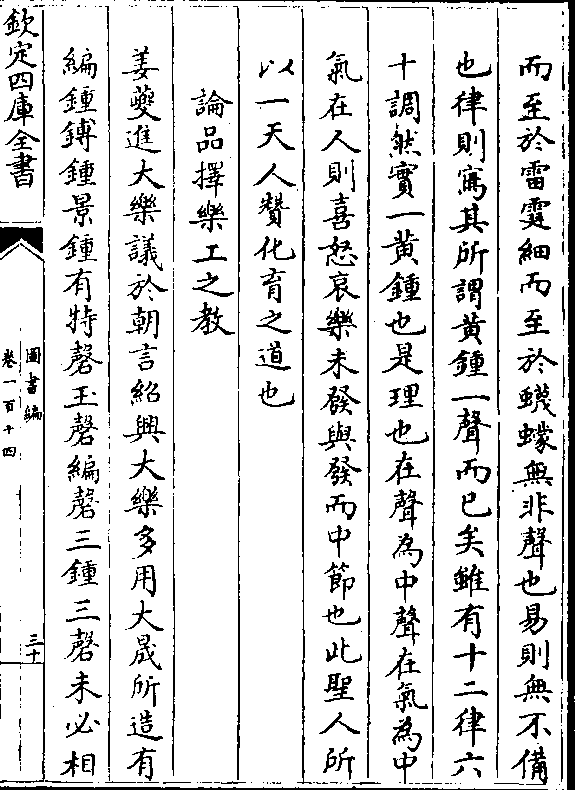 而至於雷霆細而至於蠛蠓無非聲也易則無不備
也律則寫其所謂黄鍾一聲而已矣雖有十二律六
十調然實一黄鍾也是理也在聲為中聲在氣為中
氣在人則喜怒哀樂未發與發而中節也此聖人所
以一天人贊化育之道也
論品擇樂工之教
姜夔進大樂議於朝言紹興大樂多用大晟所造有
編鍾鎛鍾景鍾有特磬玉磬編磬三鍾三磬未必相
欽定四庫全書
圖書編
卷一百十四
三十